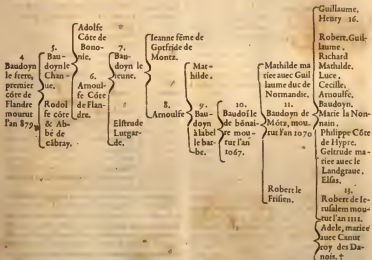 4
Baudoyn
le frere,
premier
côte de
Flandre
mourut
l'an 879
5.
Bau-
doyn le
Chau-
ue.
Rodol
fe côte
& Ab-
bé de
câbray.
Adolfe
Côte de
Bono-
nie.
6.
Arnoul-
fe Côte
de Flan-
dre.
7.
Bau-
doyn le
ieune.
Elstrude
Lutgar-
de.
Ieanne féme de
Gotfride de
Montz.
8.
Arnoulfe
Mat-
hilde.
9.
Bau-
doyn
à la bel
le bar-
be.
10.
Baudoí le
de bônai-
re mou-
rut l'an
1067.
Mathilde ma
riee auec Guil
laume duc de
Normandie.
11.
Baudoyn de
Môtz, mou.
rut l'an 1070
Robert le
Frisien.
Guillaume,
Henry 16.
Robert, Guil-
laume,
Richard
Mathilde,
Luce,
Cecille,
Arnoulfe,
Baudoyn.
Marie la Non-
nain,
Philippe Côte
de Hypre.
Geltrude ma-
riee auec le
Landgraue,
Elsas.
13.
Robert de Ie-
rusalem mou-
rut l'an 1111.
Adele, mariee
auec Canut
roy des Da-
nois. †